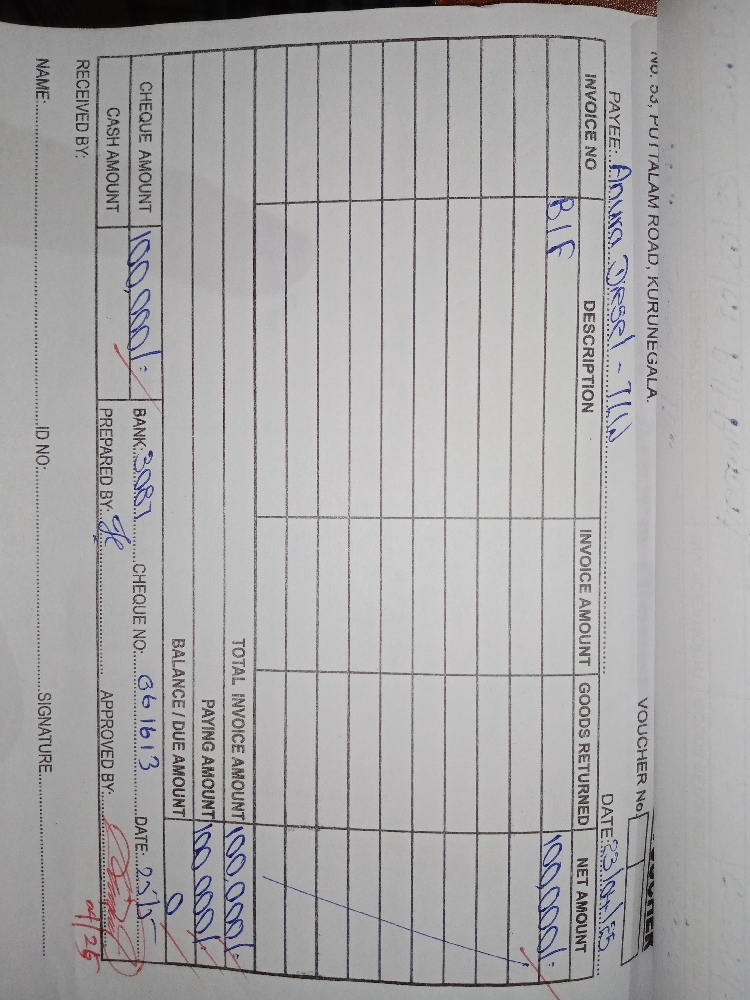 VOUCHER
No. 53, PUTTALAM ROAD, KURUNEGALA.
VOUCHER No
PAYEE: Anura Diesel - TCW DATE: 23/04/25
INVOICE NO DESCRIPTION INVOICE AMOUNT GOODS RETURNED NET AMOUNT
B/F 100,000/-
TOTAL INVOICE AMOUNT 100,000/-
PAYING AMOUNT 100,000/-
BALANCE / DUE AMOUNT 0
CHEQUE AMOUNT 100,000/- BANK: 3087 CHEQUE NO: 061613 DATE: 25/5
CASH AMOUNT PREPARED BY: APPROVED BY:
RECEIVED BY:
NAME: ID NO: SIGNATURE